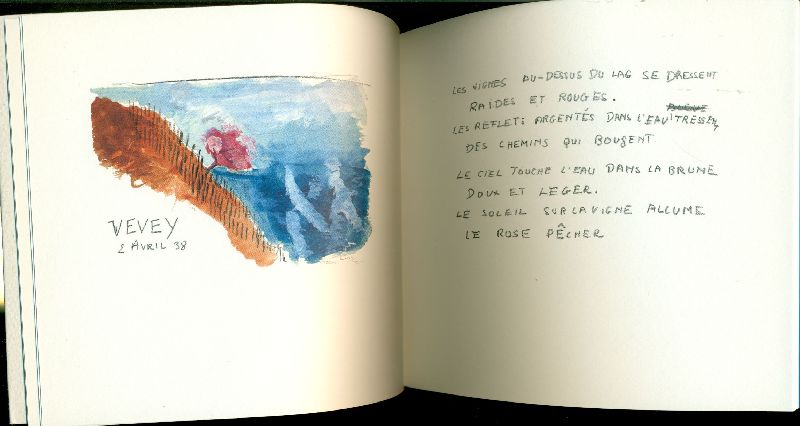 VEVEY
2 AVRIL 38
LES VIGNES AU-DESSUS DU LAC SE DRESSENT
RAIDES ET ROUGES.
LES REFLETS ARGENTÉS DANS L'EAU TRESSENT
DES CHEMINS QUI BOUGENT
LE CIEL TOUCHE L'EAU DANS LA BRUME
DOUX ET LEGER.
LE SOLEIL SUR LA VIGNE ALLUME
LE ROSE PÊCHER